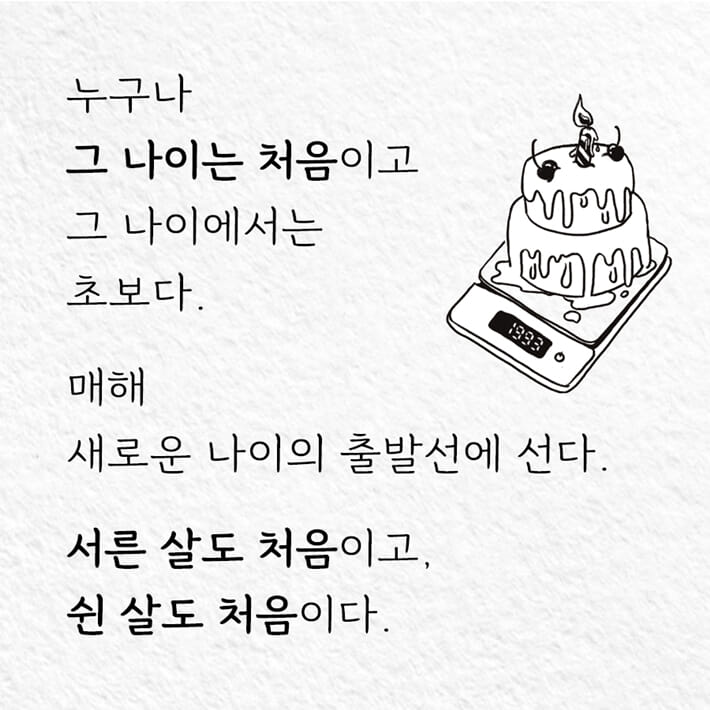 누구나
그 나이는 처음이고
그 나이에서는
초보다.
1993
매해
새로운 나이의 출발선에 선다.
서른 살도 처음이고,
쉰 살도 처음이다.